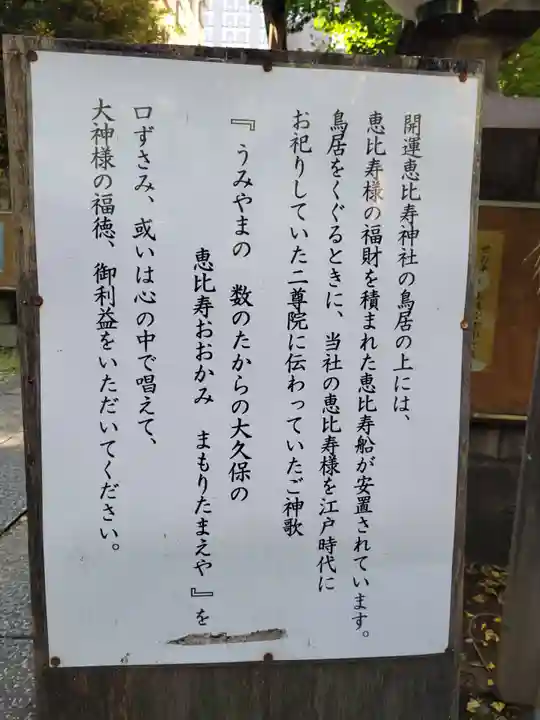 開運恵比寿神社の鳥居の上には、
恵比寿様の福財を積まれた恵比寿船が安置されています。
鳥居をくぐるときに、当社の恵比寿様を江戸時代に
お祀りしていた二尊院に伝わっていたご神歌
『うみやまの　数のたからの大久保の
恵比寿おおかみ　まもりたまえや』を
口ずさみ、或いは心の中で唱えて、
大神様の福徳、御利益をいただいてください。